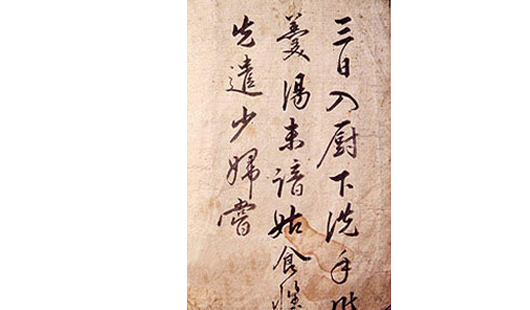 三日入厨下洗手
羹湯未諳姑食性
先遣少婦嘗